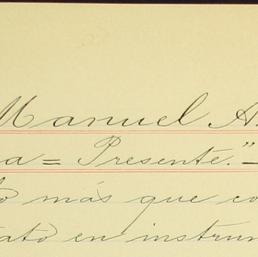 Manuel A.
a = Presente."—
o más que co
ato en instrum